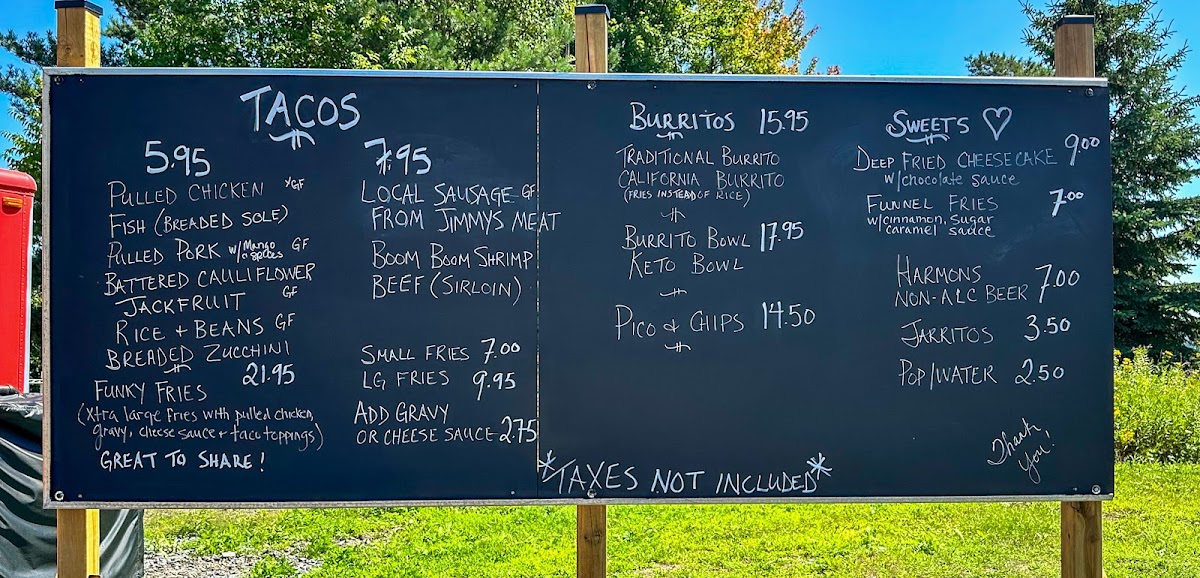 TACOS
5.95
PULLED CHICKEN *GF
FISH (BREADED SOLE)
PULLED PORK w/Mango GF
BATTERED CAULIFLOWER
JACKFRUIT GF
RICE + BEANS GF
BREADED ZUCCHINI
21.95
FUNKY FRIES
(Xtra large fries with pulled chicken,
gravy, cheese sauce + taco toppings)
GREAT TO SHARE!
7.95
LOCAL SAUSAGE GF
FROM JIMMYS MEAT
BOOM BOOM SHRIMP
BEEF (SIRLOIN)
SMALL FRIES 7.00
LG FRIES 9.95
ADD GRAVY
OR CHEESE SAUCE 2.75
BURRITOS 15.95
TRADITIONAL BURRITO
CALIFORNIA BURRITO
(FRIES INSTEAD OF RICE)
BURRITO BOWL 17.95
KETO BOWL
PICO & CHIPS 14.50
*TAXES NOT INCLUDED*
SWEETS ♡
DEEP FRIED CHEESECAKE 9.00
w/chocolate sauce
FUNNEL FRIES 7.00
w/cinnamon, sugar
caramel sauce
HARMONS 7.00
NON-ALC BEER
JARRITOS 3.50
POP/WATER 2.50
Thank
You!